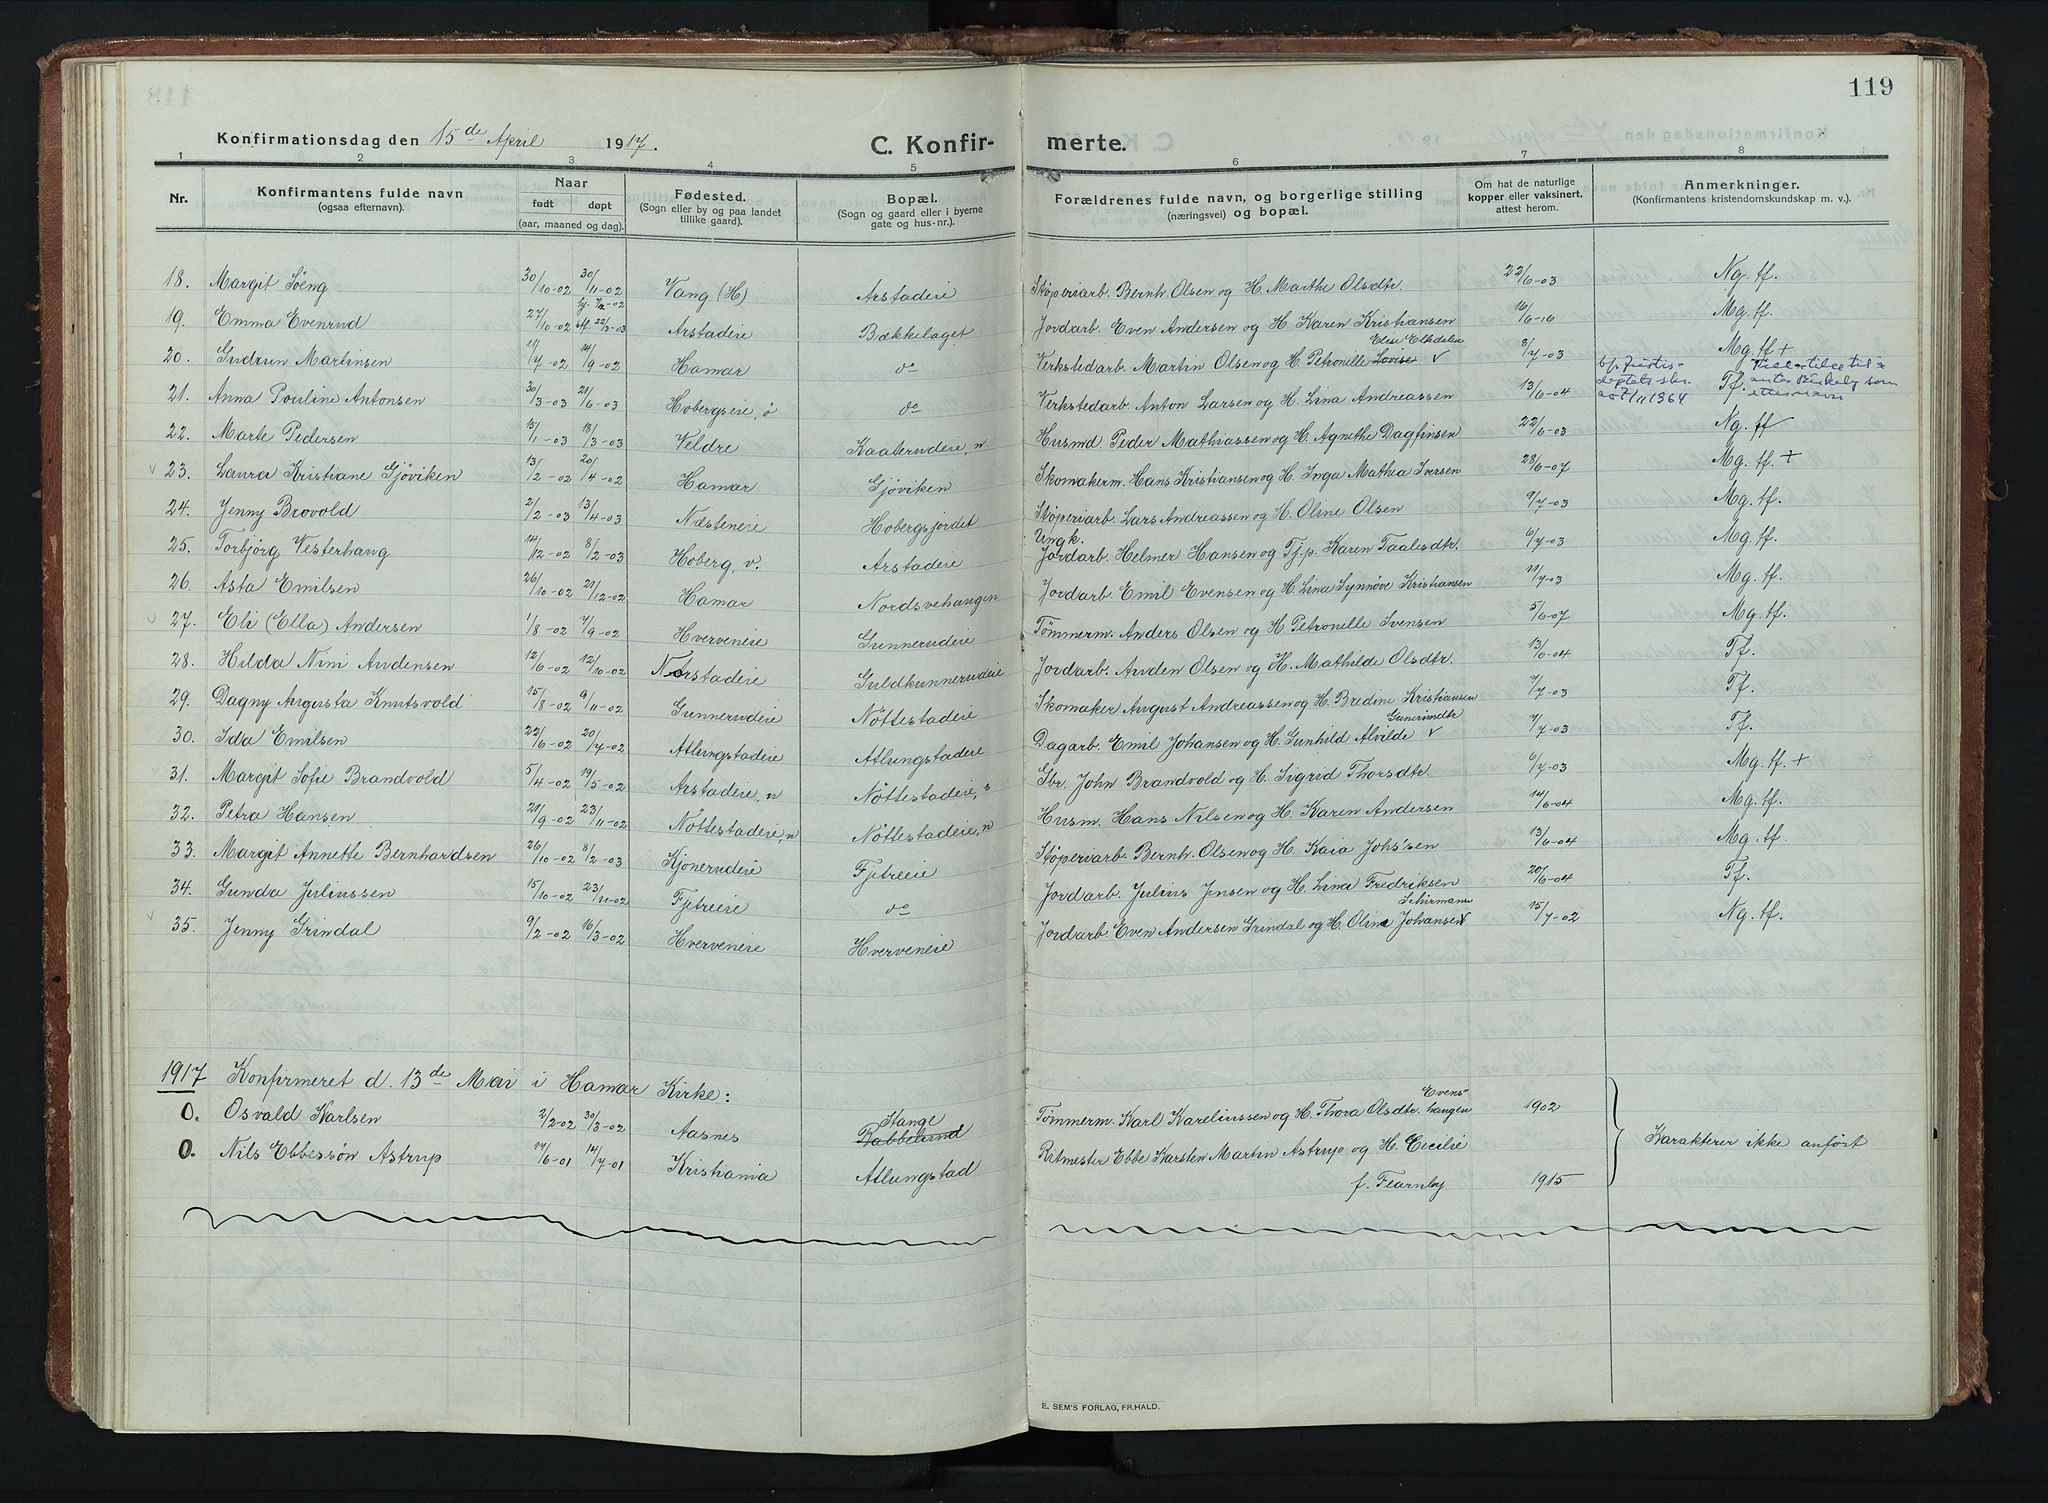 119
Konfirmationsdag den 15de April 1917.
C. Konfir- merte.
1 2 3 4 5 6 7 8
Nr. Konfirmantens fulde navn (ogsaa efternavn). Naar født døpt (aar, maaned og dag). Fødested. (Sogn eller by og paa landet tillike gaard). Bopæl. (Sogn og gaard eller i byerne gate og hus-nr.). Forældrenes fulde navn, og borgerlige stilling (næringsvei) og bopæl. Om hat de naturlige kopper eller vaksinert, attest herom. Anmerkninger. (Konfirmantens kristendomskundskap m. v.).
18. Margit Løeng 30/10-02 30/11-02 Vang (H) Arstadeie Støperiarb. Bernh. Olsen og H. Marthe Olsdtr. 22/6-03 Ng. tf.
19. Emma Evenrud 27/10-02 hj. 7/12-02 stf. 22/3-03 Arstadeie Bækkelaget Jordarb. Even Andersen og H. Karen Kristiansen 16/6-16 Mg. tf.
Elise Elkdalen
20. Gudrun Martinsen 11/7-02 14/9-02 Hamar do Verkstedarb. Martin Olsen og H. Petronelle Lovise √ 8/7-03 Mg. tf +
21. Anna Pouline Antonsen 30/3-03 21/6-03 Hobergseie, ö do Verkstedarb. Anton Larsen og H. Lina Andreassen 13/6-04 Tf.
22. Marte Pedersen 15/1-03 18/3-03 Veldre Kaaterudeie, n. Husmd. Peder Mathiassen og H. Agnethe Dagfinsen 22/6-03 Ng. tf
23. Laura Kristiane Gjøviken 13/2-02 20/4-02 Hamar Gjøviken Skomakerm. Hans Kristiansen og H. Inga Mathea Iversen 28/6-07 Mg. tf. +
24. Jenny Brovold 2/2-03 13/4-03 Næsteneie Hobergsjordet Støperiarb. Lars Andreassen og H. Oline Olsen 9/7-03 Mg. tf.
Ungk.
25. Torbjørg Vesterhaug 14/12-02 8/2-03 Hoberg, v. Arstadeie Jordarb. Helmer Hansen og Tj.p. Karen Taalesdtr. 6/7-03 Mg. tf.
26. Asta Emilsen 26/10-02 21/12-02 Hamar Nordsvehaugen Jordarb. Emil Evensen og H. Lina Synnøve Kristiansen 11/7-03 Mg. tf.
27. Eli (Ella) Andersen 1/8-02 7/9-02 Hverveneie Gunnerudeie Tømmerm. Anders Olsen og H. Petronelle Svensen 5/6-07 Mg. tf.
28. Hilda Nini Audensen 12/6-02 12/10-02 Norstadeie Guldkunnerudeie Jordarb. Auden Olsen og H. Mathilde Olsdtr. 13/6-04 Tf.
29. Dagny Augusta Knutsvold 15/8-02 9/11-02 Gunnerudeie Nøttestadeie Skomaker August Andreassen og H. Bredine Kristiansen 7/7-03 Tf.
Gunerindtr
30. Ida Emilsen 22/6-02 20/7-02 Atlungstadeie Atlungstadeie Dagarb. Emil Johansen og H. Gunhild Alvilde √ 7/7-03 Tf.
31. Margit Sofie Brandvold 5/4-02 19/5-02 Arstadeie, n Nøttestadeie, s Gbr. John Brandvold og H. Sigrid Thorsdtr. 6/7-03 Mg. tf. +
32. Petra Hansen 21/9-02 23/11-02 Nøttestadeie, n Nøttestadeie, n Husm. Hans Nilsen og H. Karen Andersen 14/6-04 Mg. tf.
33. Margit Annette Bernhardsen 26/10-02 8/2-03 Kjonerudeie Fjetreeie Støperiarb. Bernh. Olsen og H. Kaia Johs'sen 13/6-04 Mg. tf.
34. Gunda Juliussen 15/10-02 23/11-02 Fjetreeie do Jordarb. Julius Jensen og H. Lina Fredriksen 20/6-04 Tf.
Schirmann
35. Jenny Grindal 9/2-02 16/3-02 Hverveneie Hverveneie Jordarb. Even Andersen Grindal og H. Olina Johansen √ 15/7-02 Ng. tf.
1917 Konfirmeret d. 13de Mai i Hamar Kirke:
0. Osvald Karlsen 2/2-02 30/3-02 Aasnes Stange Rabbelund Tømmerm. Karl Karelinssen og H. Thora Olsdtr. Evenshaugen 1902
0. Nils Ebbessøn Astrup 17/6-01 14/7-01 Kristiania Atlungstad Ritmester Ebbe Karsten Martin Astrup og H. Cecilie f. Fearnley 1915
Karakterer ikke anført
E. SEM'S FORLAG, FR.HALD.